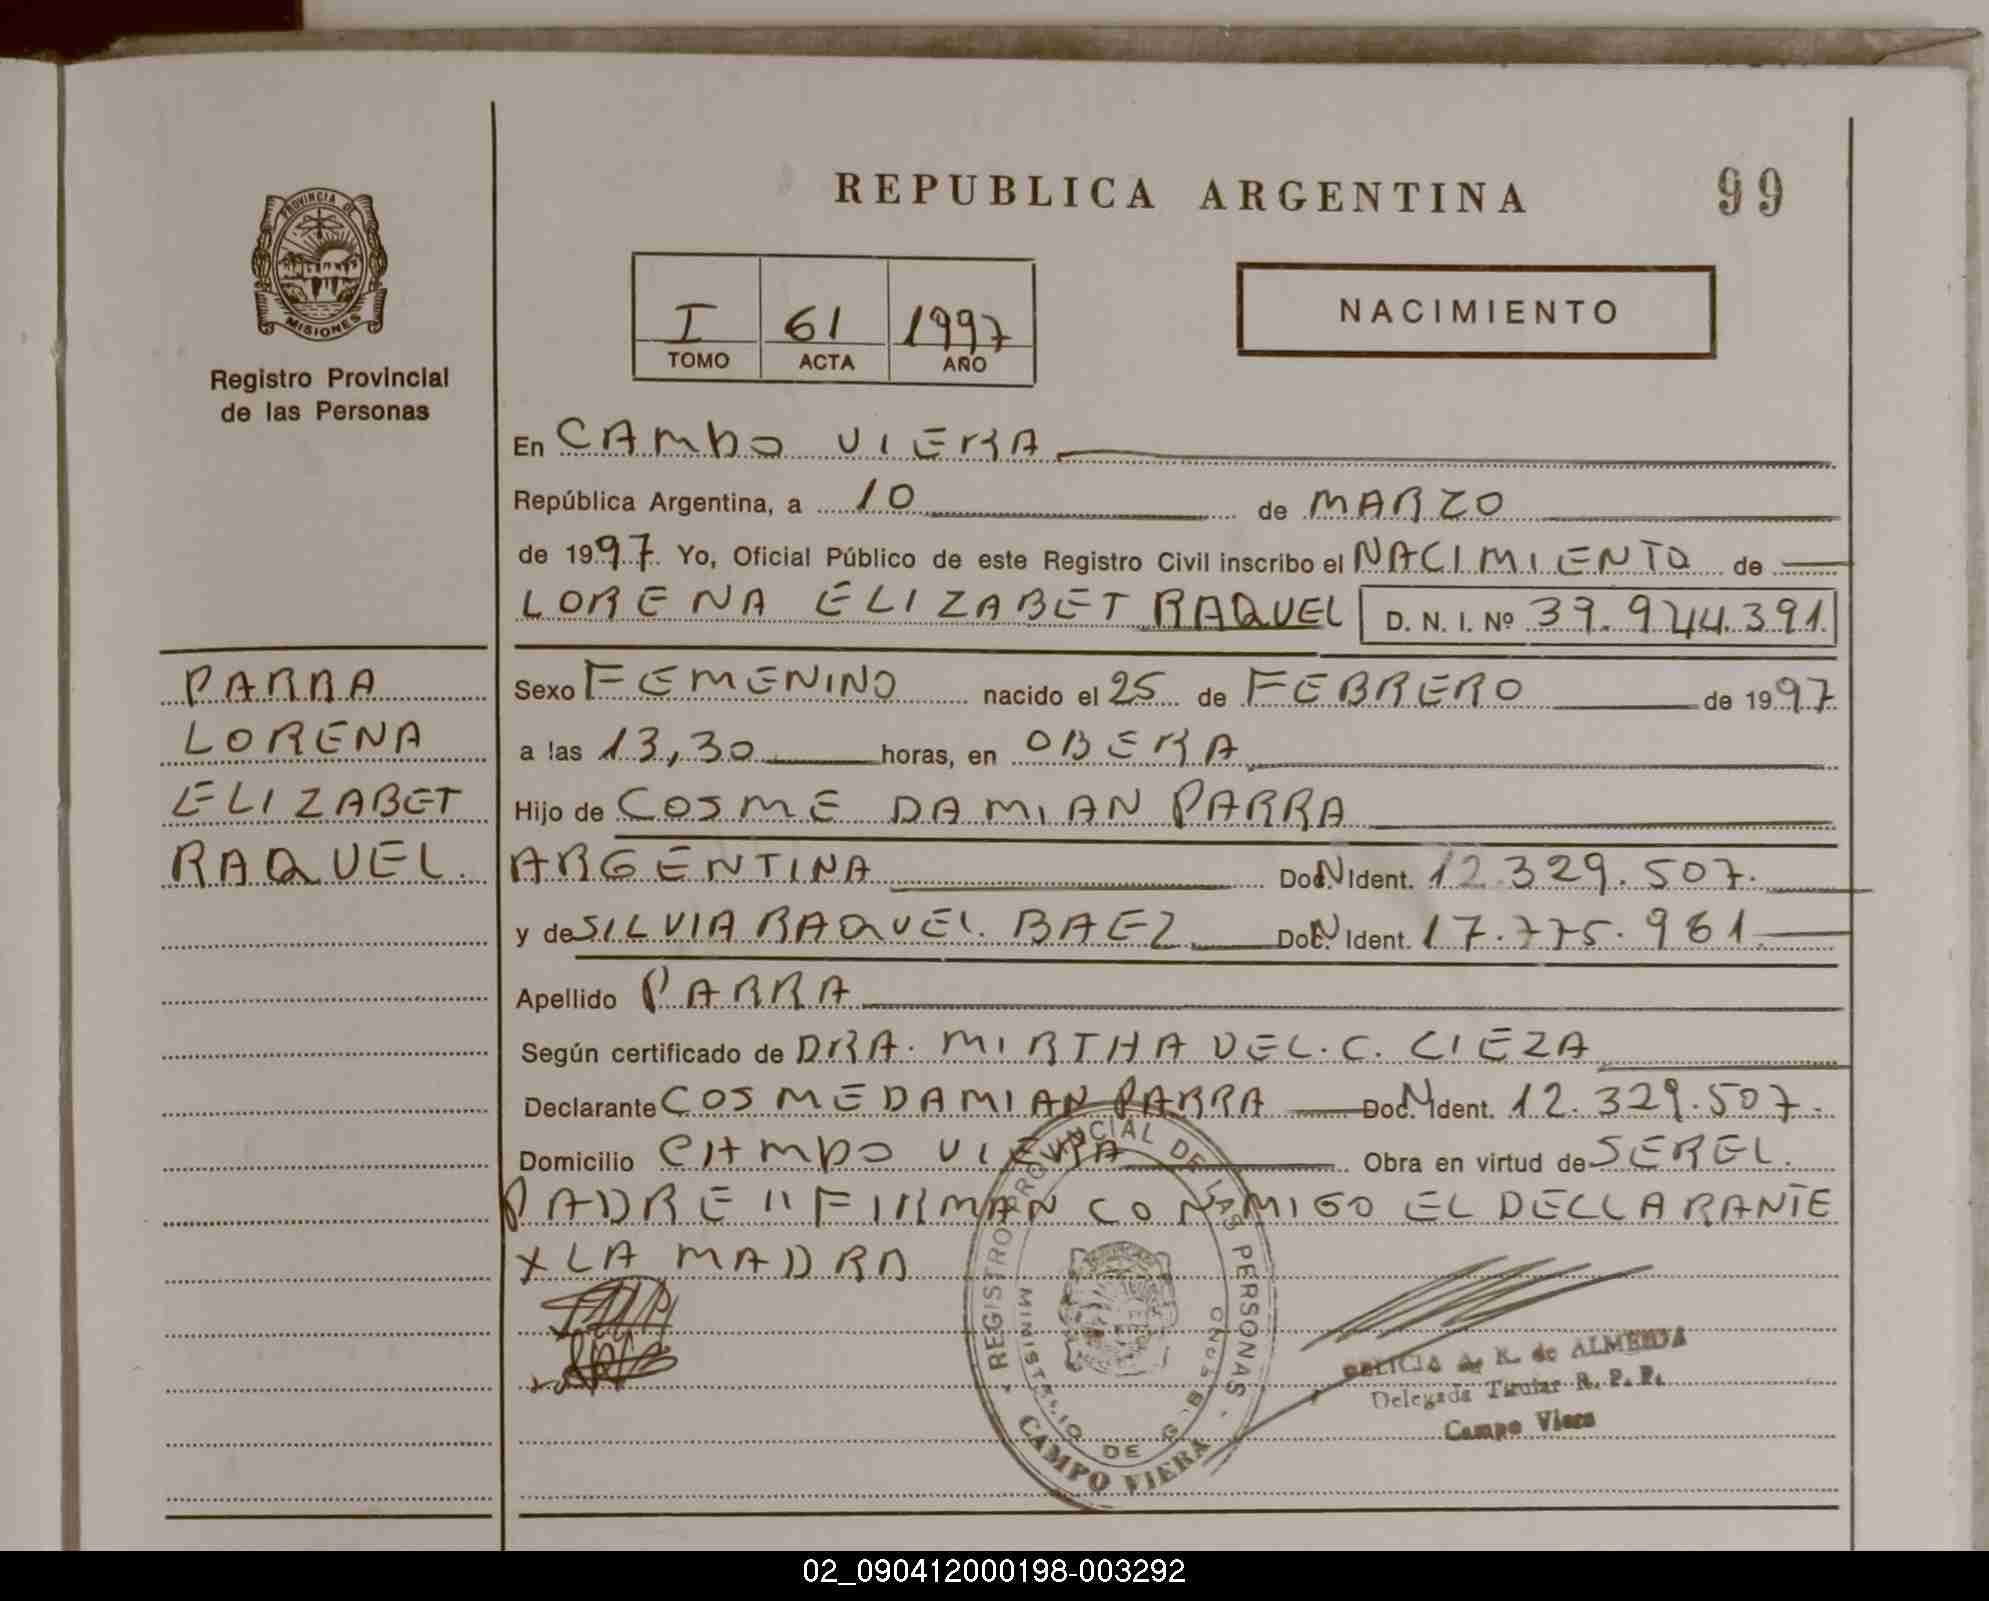 REPUBLICA ARGENTINA
99
PROVINCIA DE
MISIONES
Registro Provincial
de las Personas
I 61 1997
TOMO ACTA AÑO
NACIMIENTO
En CAMPO VIERA
República Argentina, a 10 de MARZO
de 1997. Yo, Oficial Público de este Registro Civil inscribo el NACIMIENTO de
LORENA ELIZABET RAQUEL D. N. I. Nº 39.944.391.
PARRA
LORENA
ELIZABET
RAQUEL.
Sexo FEMENINO nacido el 25 de FEBRERO de 1997.
a las 13,30 horas, en OBERA
Hijo de COSME DAMIAN PARRA
ARGENTINA Doc.N Ident. 12.329.507.
y de SILVIA RAQUEL. BAEZ Doc.N Ident. 17.775.961
Apellido PARRA
Según certificado de DRA. MIRTHA DEL. C. CIEZA
Declarante COSME DAMIAN PARRA Doc.N Ident. 12.329.507.
Domicilio CAMPO VIERA Obra en virtud de SEREL.
PADRE "FIRMAN CONMIGO EL DECLARANTE
Y LA MADRA
REGISTRO PROVINCIAL DE LAS PERSONAS
MINISTERIO DE
CAMPO VIERA
A. K. de ALMEIDA
Delegada Titular R. P. P.
Campo Viera
02_090412000198-003292